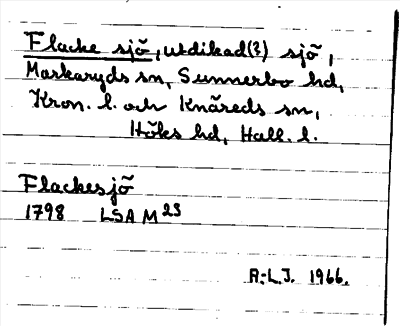 Flacke sjö, utdikad(?) sjö,
Markaryds sn, Sunnerbo hd,
Kron. l. och Knäreds sn,
Höks hd, Hall. l.
Flackesjö
1798 LSA M 23
R:L.J. 1966.